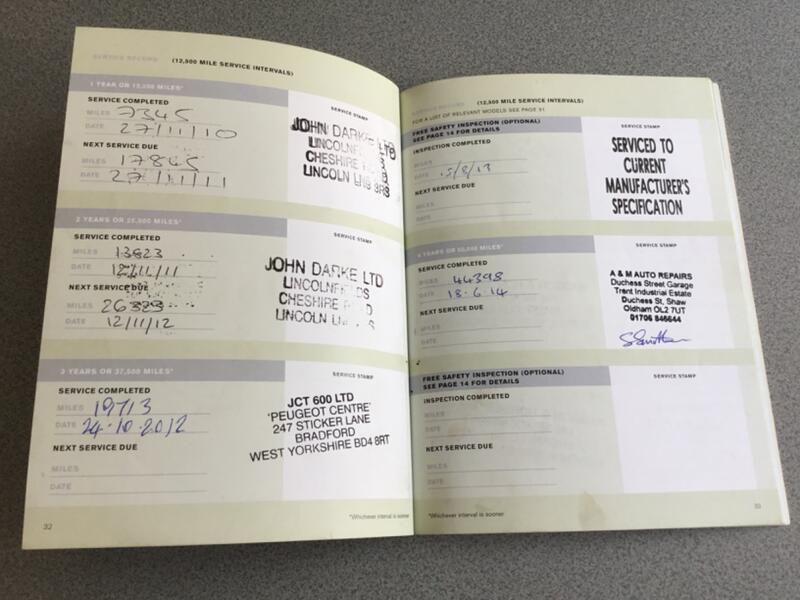 SERVICE RECORD (12,500 MILE SERVICE INTERVALS)
1 YEAR OR 12,500 MILES*
SERVICE COMPLETED
MILES 7345
DATE 27/11/10
NEXT SERVICE DUE
MILES 17845
DATE 27/11/11
SERVICE STAMP
JOHN DARKE LTD
CHESHIRE
LINCOLN
2 YEARS OR 25,000 MILES*
SERVICE COMPLETED
MILES 13823
DATE 12/11/11
NEXT SERVICE DUE
MILES 26323
DATE 12/11/12
SERVICE STAMP
JOHN DARKE LTD
LINCOLNFIELDS
CHESHIRE
LINCOLN
3 YEARS OR 37,500 MILES*
SERVICE COMPLETED
MILES 19713
DATE 24.10.2012
NEXT SERVICE DUE
MILES
DATE
SERVICE STAMP
JCT 600 LTD
'PEUGEOT CENTRE'
247 STICKER LANE
BRADFORD
WEST YORKSHIRE BD4 8RT
32
*Whichever interval is sooner
SERVICE RECORD (12,500 MILE SERVICE INTERVALS)
FOR A LIST OF RELEVANT MODELS SEE PAGE 51
FREE SAFETY INSPECTION (OPTIONAL)
SEE PAGE 14 FOR DETAILS
INSPECTION COMPLETED
MILES
DATE
NEXT SERVICE DUE
MILES
DATE
SERVICE STAMP
SERVICED TO
CURRENT
MANUFACTURER'S
SPECIFICATION
4 YEARS OR 50,000 MILES*
SERVICE COMPLETED
MILES 44398
DATE 18.6.14
NEXT SERVICE DUE
MILES
DATE
SERVICE STAMP
A & M AUTO REPAIRS
Duchess Street Garage
Trent Industrial Estate
Duchess St, Shaw
Oldham OL2 7UT
01706 846644
FREE SAFETY INSPECTION (OPTIONAL)
SEE PAGE 14 FOR DETAILS
INSPECTION COMPLETED
MILES
DATE
NEXT SERVICE DUE
MILES
DATE
SERVICE STAMP
*Whichever interval is sooner
33